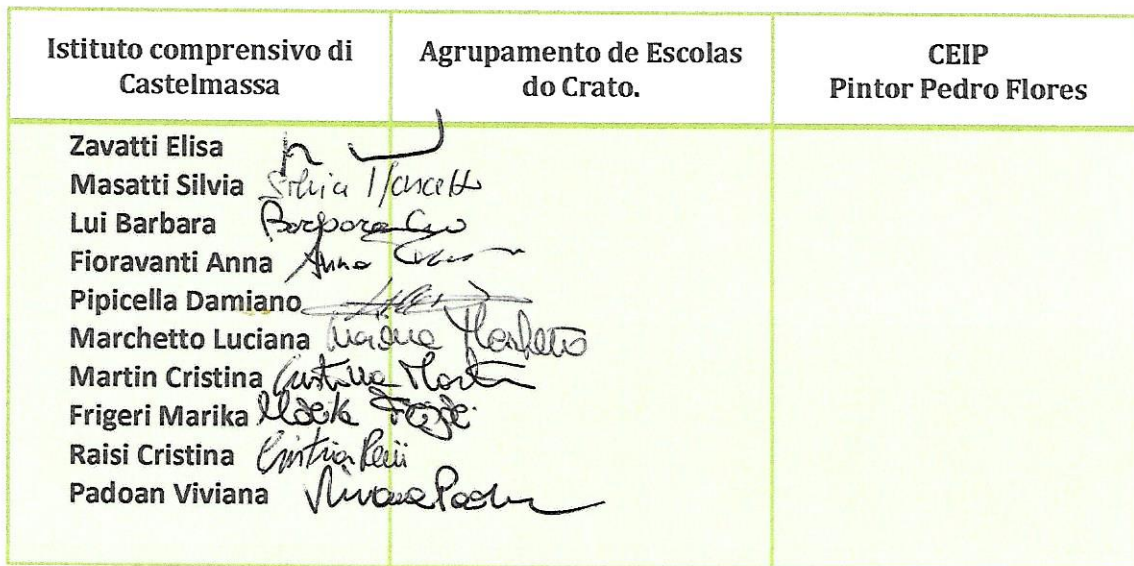 Istituto comprensivo di
Castelmassa
Agrupamento de Escolas
do Crato.
CEIP
Pintor Pedro Flores
Zavatti Elisa
Masatti Silvia Silvia
Lui Barbara Barbara
Fioravanti Anna Anna
Pipicella Damiano
Marchetto Luciana Luciana Marchetto
Martin Cristina Cristina Martin
Frigeri Marika Marika
Raisi Cristina Cristina Raisi
Padoan Viviana Viviana Padoan